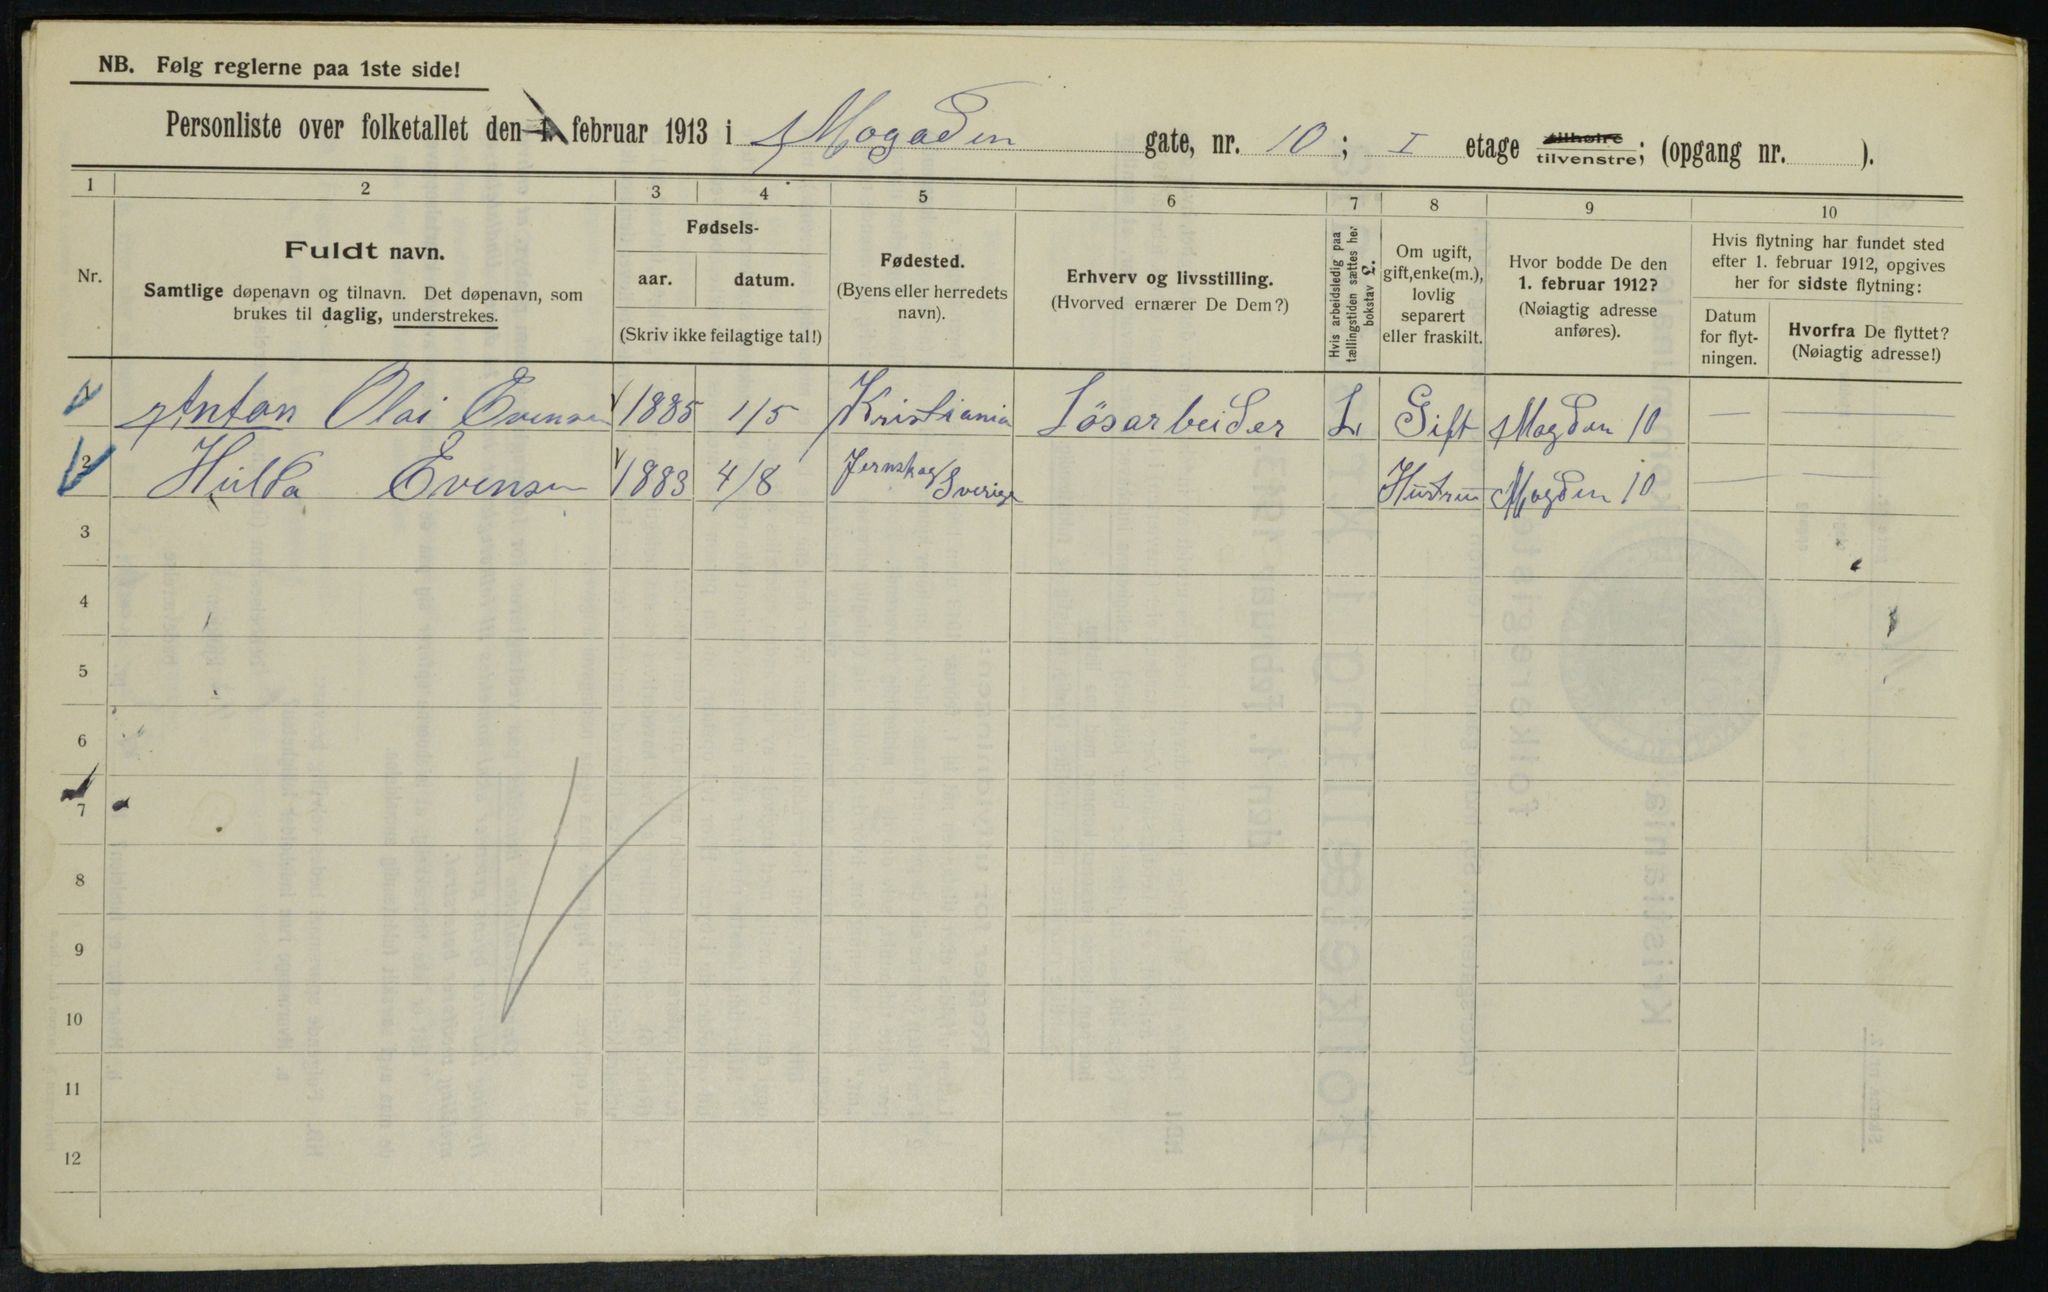 NB. Følg reglerne paa 1ste side!
Personliste over folketallet den 1. februar 1913 i Mogaden gate, nr. 10; I etage tilhøire tilvenstre; (opgang nr. ).
1 2 3 4 5 6 7 8 9 10
Nr.
Fuldt navn.
Samtlige døpenavn og tilnavn. Det døpenavn, som
brukes til daglig, understrekes.
Fødsels-
aar. datum.
(Skriv ikke feilagtige tal!)
Fødested.
(Byens eller herredets
navn).
Erhverv og livsstilling.
(Hvorved ernærer De Dem?)
Hvis arbeidsledig paa
tællingstiden sættes her
bokstav L.
Om ugift,
gift, enke(m.),
lovlig
separert
eller fraskilt.
Hvor bodde De den
1. februar 1912?
(Nøiagtig adresse
anføres).
Hvis flytning har fundet sted
efter 1. februar 1912, opgives
her for sidste flytning:
Datum
for flyt-
ningen.
Hvorfra De flyttet?
(Nøiagtig adresse!)
1 Anton Olai Evensen 1885 1/5 Kristiania Lösarbeider L. Gift Mogden 10 — —
2 Hulda Evensen 1883 4/8 Jernskog Sverige Hustru Mogden 10 — —
3
4
5
6
7
8
9
10
11
12